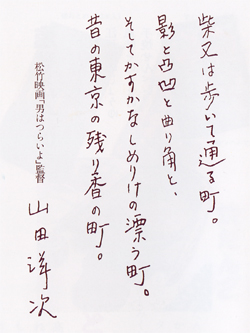 柴又は歩いて通る町。
影と凸凹と曲り角と、
そしてかすかなしめりけの漂う町。
昔の東京の残り香の町。
松竹映画「男はつらいよ」監督
山田洋次